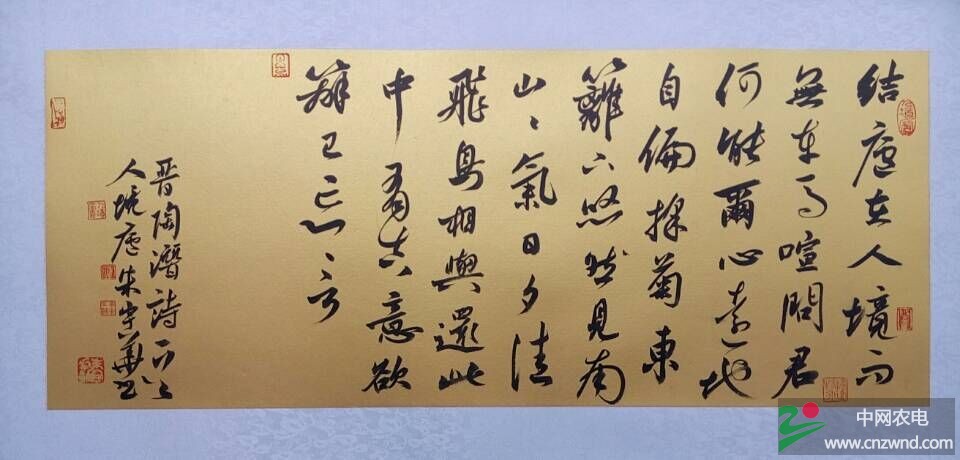 结廬在人境而
無車馬喧問君
何能爾心遠地
自偏採菊東
籬下悠然見南
山〻氣日夕佳
飛鳥相與還此
中有真意欲
辨已忘言
晋陶潛詩
人境廬朱華书
中网农电
www.cnzwnd.com